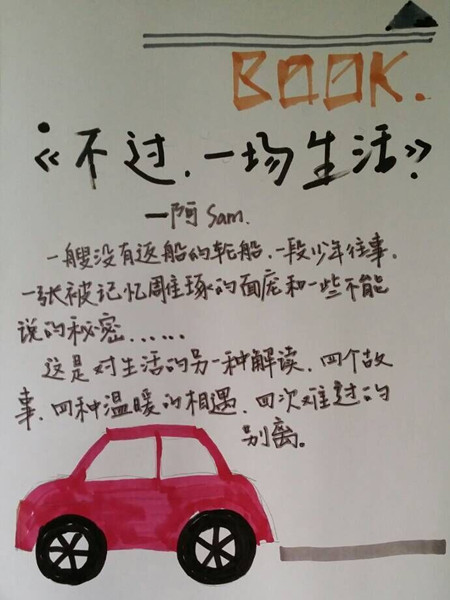 BOOK.
《不过，一场生活》
—阿Sam.
一艘没有返船的轮船，一段少年往事。
一张被记忆雕琢的面庞和一些不能
说的秘密……
这是对生活的另一种解读，四个故
事，四种温暖的相遇，四次难过的
别离。